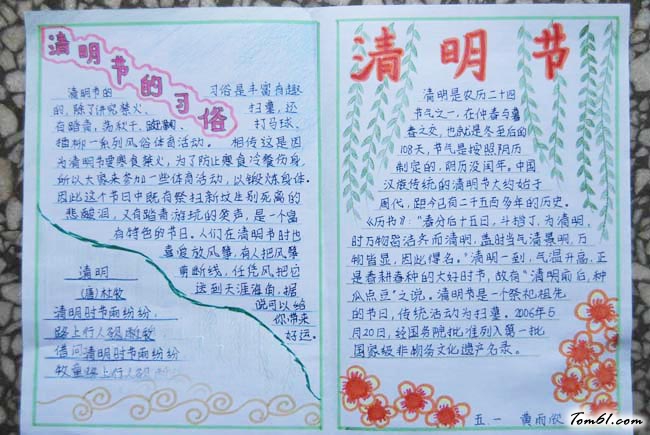 清明节的习俗
清明节的 习俗是丰富有趣
的,除了讲究禁火、 扫墓,还
有踏青、荡秋千、蹴鞠、 打马球、
插柳一系列风俗体育活动。 相传这是因
为清明节要寒食禁火,为了防止寒食冷餐伤身,
所以大家来参加一些体育活动,以锻炼身体。
因此这个节日中既有祭扫新坟生别死离的
悲酸泪,又有踏青游玩的笑声,是一个富
有特色的节日。人们在清明节时也
喜爱放风筝,有人把风筝
剪断线,任凭风把它
送到天涯海角,据
说可以给
你带来
好运。
清明
(唐)杜牧
清明时节雨纷纷,
路上行人
借问清明时节雨纷纷
牧童路上行人
清明节
清明是农历二十四
节气之一,在仲春与暮
春之交,也就是冬至后的
108天,节气是按照阴历
制定的,明历没闰年。中国
汉族传统的清明节大约始于
周代,距今已有二千五百多年的历史。
《历书》:“春分后十五日,斗指丁,为清明,
时万物皆洁齐而清明,盖时当气清景明,万
物皆显,因此得名。”清明一到,气温升高,正
是春耕春种的大好时节,故有“清明前后,种
瓜点豆”之说。清明节是一个祭祀祖先
的节日,传统活动为扫墓。2006年5
月20日,经国务院批准列入第一批
国家级非物务文化遗产名录。
五.一 黄雨欣
Tom61.com